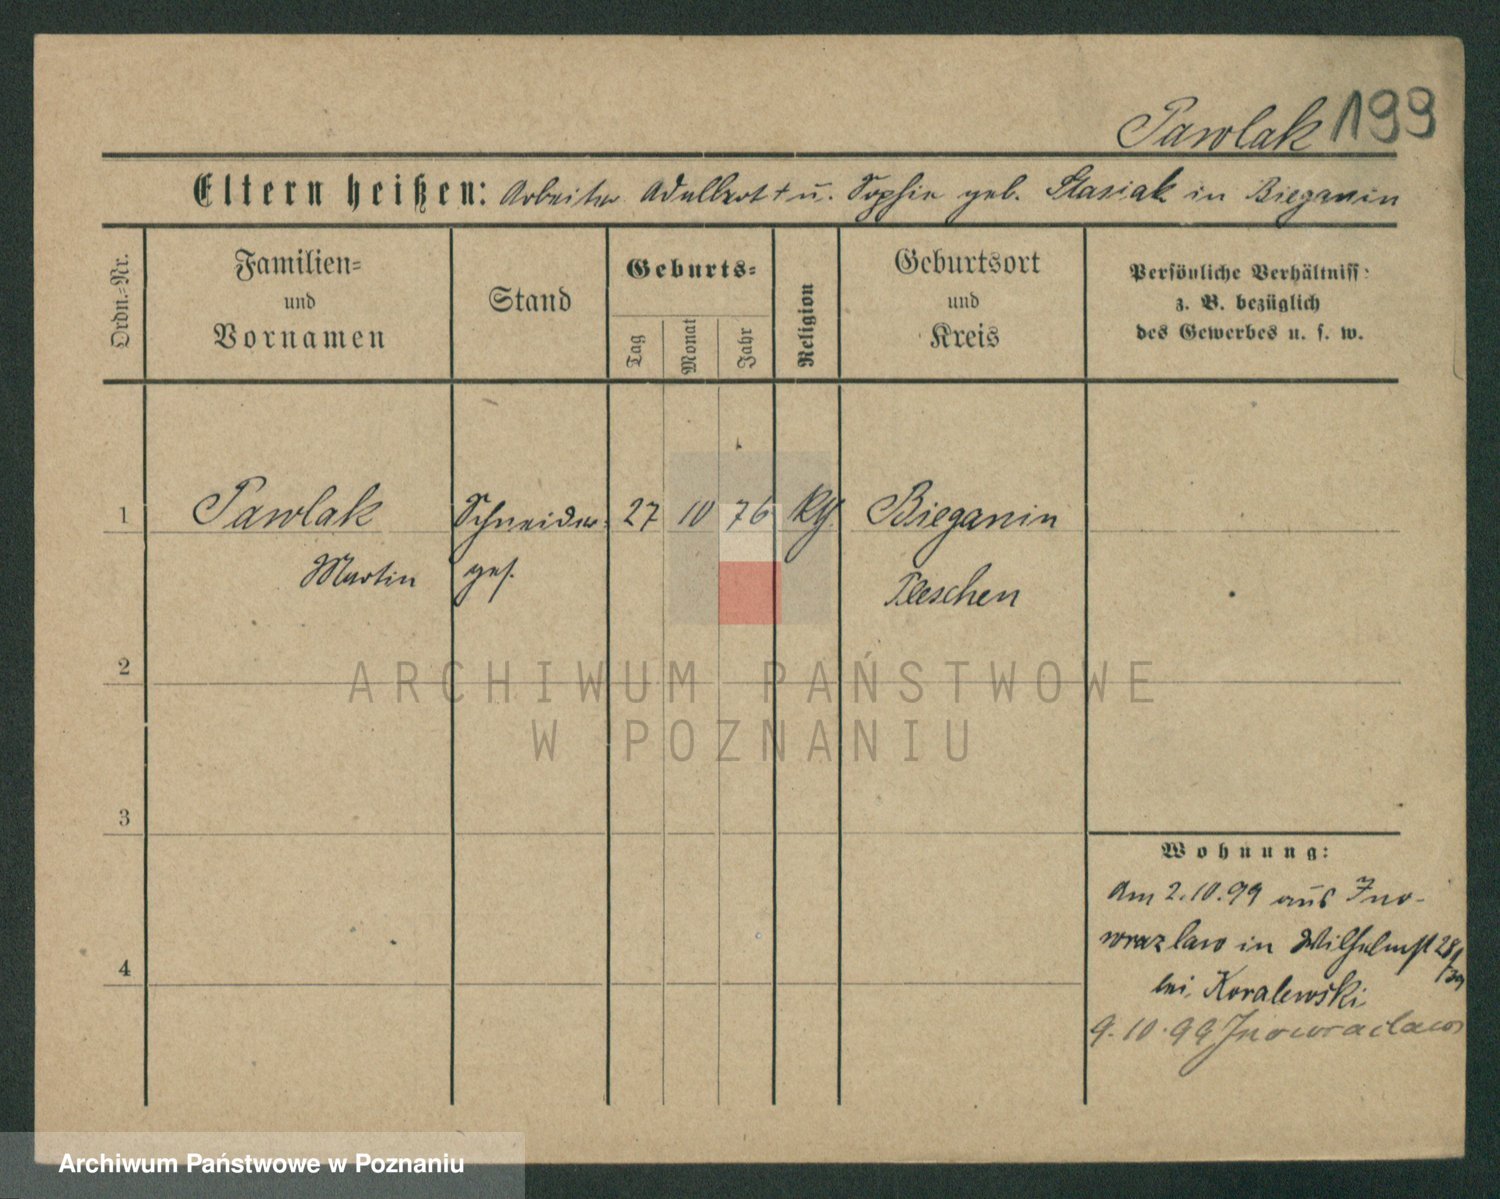 Pawlak 199
Eltern heißen: Arbeiter Adalbert † u. Sophie geb. Stasiak in Bieganin
Ordn.-Nr.
Familien-
und
Vornamen
Stand
Geburts-
Tag
Monat
Jahr
Religion
Geburtsort
und
Kreis
Persönliche Verhältniss
z. B. bezüglich
des Gewerbes u. s. w.
1 Pawlak Schneider 27 10 76 Bieganin
Martin ges. Pleschen
2
3
4
Wohnung:
Am 2.10.99 aus Ino-
wrazlaw in Wilhelmst 28/
bei Koralewski
9.10.99 Inowraclaw
ARCHIWUM PAŃSTWOWE
W POZNANIU
Archiwum Państwowe w Poznaniu